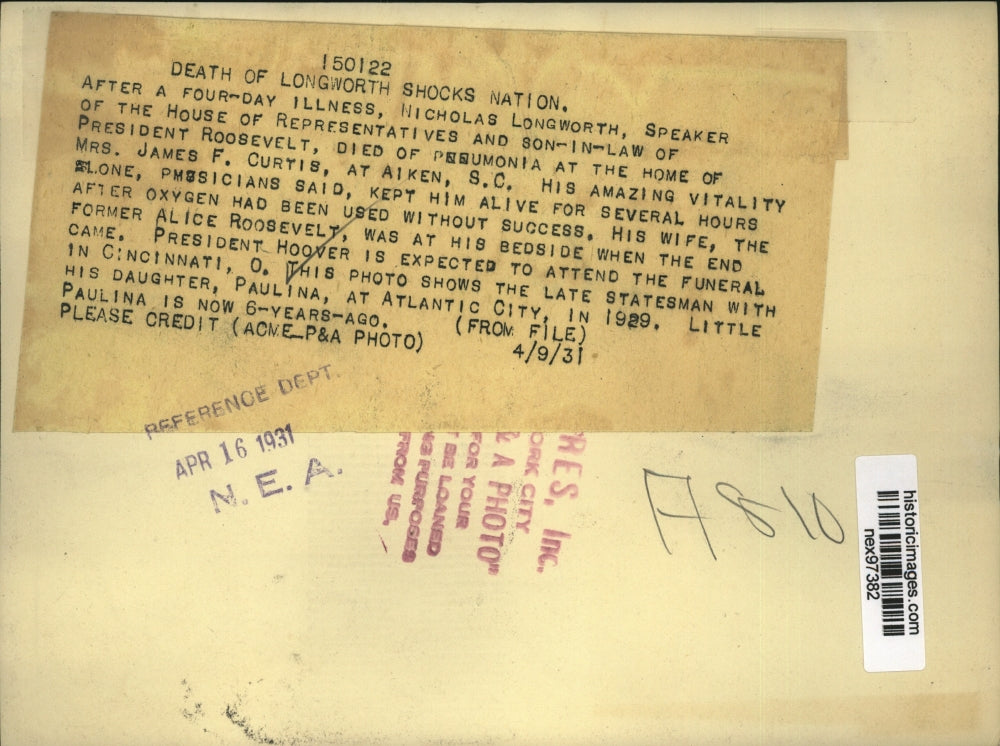 150122
DEATH OF LONGWORTH SHOCKS NATION.
AFTER A FOUR-DAY ILLNESS, NICHOLAS LONGWORTH, SPEAKER
OF THE HOUSE OF REPRESENTATIVES AND SON-IN-LAW OF
PRESIDENT ROOSEVELT, DIED OF PNEUMONIA AT THE HOME OF
MRS. JAMES F. CURTIS, AT AIKEN, S.C. HIS AMAZING VITALITY
ALONE, PHYSICIANS SAID, KEPT HIM ALIVE FOR SEVERAL HOURS
AFTER OXYGEN HAD BEEN USED WITHOUT SUCCESS. HIS WIFE, THE
FORMER ALICE ROOSEVELT, WAS AT HIS BEDSIDE WHEN THE END
CAME. PRESIDENT HOOVER IS EXPECTED TO ATTEND THE FUNERAL
IN CINCINNATI, O. THIS PHOTO SHOWS THE LATE STATESMAN WITH
HIS DAUGHTER, PAULINA, AT ATLANTIC CITY, IN 1929. LITTLE
PAULINA IS NOW 6-YEARS-AGO. (FROM FILE)
PLEASE CREDIT (ACME-P&A PHOTO) 4/9/31
REFERENCE DEPT.
APR 16 1931
N. E. A.
RES, Inc.
ORK CITY
& A PHOTO"
FOR YOUR
T BE LOANED
NG PURPOSES
FROM US.
A 810
historicimages.com
nex97382